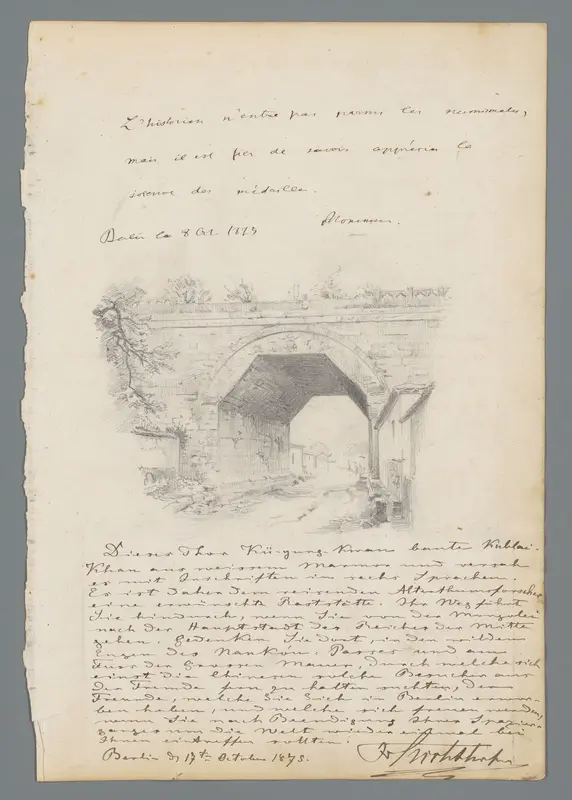 L'historien n'entre pas parmi les
mais il est fier de savoir apprécier la
science des médailles.
Berlin le 8 Oct 1873
Mommsen.
Dieses Thor Kü-yung-kwan baute Kublai-
Khan aus weissem Marmor und versah
es mit Inschriften in sechs Sprachen.
Es ist daher dem reisenden Alterthumsforscher
eine erwünschte Raststätte. Ihr Weg führt
Sie hindurch, wenn Sie von der Mongolei
nach der Hauptstadt des Reiches der Mitte
gehen. Gedenken Sie dort, in den wilden
Engen des Nankóu-Passes und am
Fuss der Grossen Mauer, durch welche sich
einst die Chinesen solche Besucher aus
der Fremde fern zu halten suchten, der
Freunde, welche Sie Sich in Berlin erwor-
ben haben, und welche sich freuen werden,
wenn Sie nach Beendigung Ihres Spazier-
ganges um die Welt wieder einmal bei
Ihnen eintreffen sollten.
Berlin d. 17ten October 1873.
Richthofen